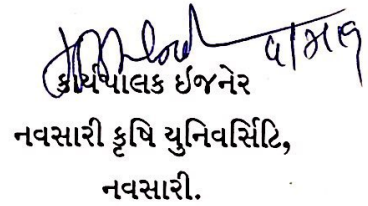 કાર્યપાલક ઈજનેર
નવસારી કૃષિ યુનિવર્સિટિ,
નવસારી.